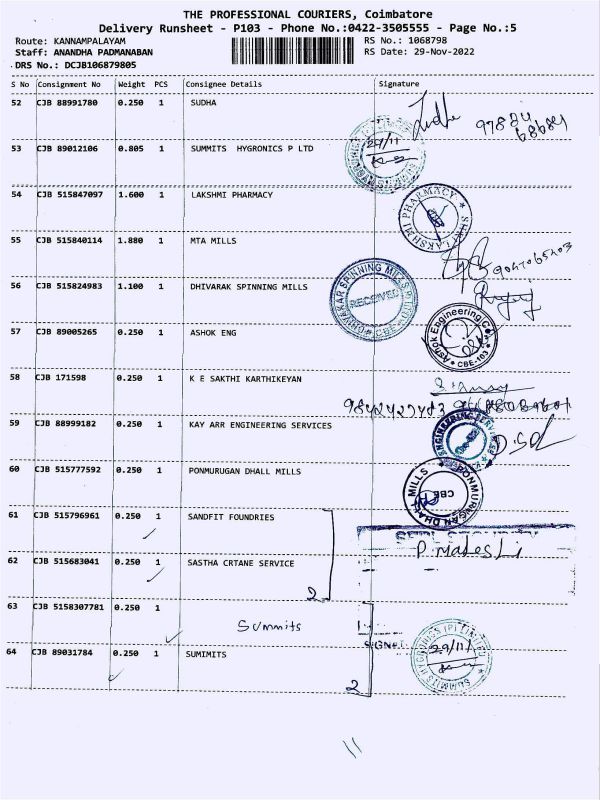 THE PROFESSIONAL COURIERS, Coimbatore
Delivery Runsheet - P103 - Phone No.:0422-3505555 - Page No.:5
Route: KANNAMPALAYAM
RS No.: 1068798
Staff: ANANDHA PADMANABAN
RS Date: 29-Nov-2022
DRS No.: DCJB106879805
S No Consignment No Weight PCS Consignee Details Signature
52 CJB 88991780 0.250 1 SUDHA
53 CJB 89012106 0.805 1 SUMMITS HYGRONICS P LTD
29/11
54 CJB 515847097 1.600 1 LAKSHMI PHARMACY
SHRI LAKSHMI PHARMACY
55 CJB 515840114 1.880 1 MTA MILLS
56 CJB 515824983 1.100 1 DHIVARAK SPINNING MILLS
DHIVAKAR SPINNING MILLS (P) LTD
RECEIVED
CBE
57 CJB 89005265 0.250 1 ASHOK ENG
Ashok Engineering Co
CBE-103
58 CJB 171598 0.250 1 K E SAKTHI KARTHIKEYAN
59 CJB 88999182 0.250 1 KAY ARR ENGINEERING SERVICES
ENGINEERING SERVICES
60 CJB 515777592 0.250 1 PONMURUGAN DHALL MILLS
PONMURUGAN DHALL MILLS
CBE
61 CJB 515796961 0.250 1 SANDFIT FOUNDRIES
62 CJB 515683041 0.250 1 SASTHA CRTANE SERVICE
2
63 CJB 5158307781 0.250 1
Summits
64 CJB 89031784 0.250 1 SUMIMITS
SUMMITS HYGRONICS (P) LIMITED
29/11
2